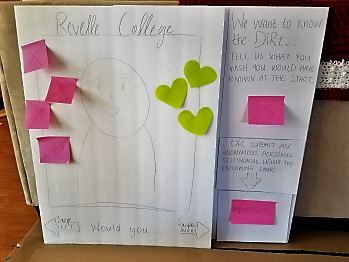 Revelle College
Would you...
Swipe
left
Swipe
right
We want to know
the DiRt...
TELL US WHAT YOU
WISH YOU WOULD HAVE
KNOWN AT THE START.
OR SUBMIT AN
ANONYMOUS PERSONAL
TESTIMONIAL USING THE
FOLLOWING LINK: